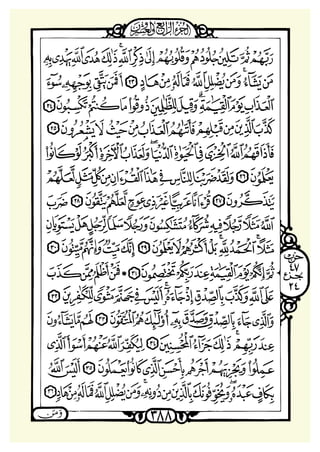 الجزء الرابع والعشرون
رَبَّهُمْ ثُمَّ تَلِينُ جُلُودُهُمْ وَقُلُوبُهُمْ إِلَىٰ ذِكْرِ اللَّهِ ذَٰلِكَ هُدَى اللَّهِ يَهْدِي بِهِ
مَنْ يَّشَاءُ وَمَنْ يُّضْلِلِ اللَّهُ فَمَا لَهُ مِنْ هَادٍ أَفَمَنْ يَّتَّقِي بِوَجْهِهِ سُوءَ
الْعَذَابِ يَوْمَ الْقِيَٰمَةِ وَقِيلَ لِلظَّٰلِمِينَ ذُوقُوا مَا كُنْتُمْ تَكْسِبُونَ
كَذَّبَ الَّذِينَ مِنْ قَبْلِهِمْ فَأَتَىٰهُمُ الْعَذَابُ مِنْ حَيْثُ لَا يَشْعُرُونَ
فَأَذَاقَهُمُ اللَّهُ الْخِزْيَ فِي الْحَيَوٰةِ الدُّنْيَا وَلَعَذَابُ الْأَخِرَةِ أَكْبَرُ لَوْ كَانُوا
يَعْلَمُونَ وَلَقَدْ ضَرَبْنَا لِلنَّاسِ فِي هَٰذَا الْقُرْءَانِ مِنْ كُلِّ مَثَلٍ لَّعَلَّهُمْ
يَتَذَكَّرُونَ قُرْءَانًا عَرَبِيًّا غَيْرَ ذِي عِوَجٍ لَّعَلَّهُمْ يَتَّقُونَ ضَرَبَ
اللَّهُ مَثَلًا رَّجُلًا فِيهِ شُرَكَاءُ مُتَشَٰكِسُونَ وَرَجُلًا سَلَمًا لِّرَجُلٍ هَلْ يَسْتَوِيَانِ
مَثَلًا الْحَمْدُ لِلَّهِ بَلْ أَكْثَرُهُمْ لَا يَعْلَمُونَ إِنَّكَ مَيِّتٌ وَإِنَّهُمْ مَّيِّتُونَ
ثُمَّ إِنَّكُمْ يَوْمَ الْقِيَٰمَةِ عِنْدَ رَبِّكُمْ تَخْتَصِمُونَ فَمَنْ أَظْلَمُ مِمَّنْ كَذَبَ
عَلَى اللَّهِ وَكَذَّبَ بِالصِّدْقِ إِذْ جَاءَهُ أَلَيْسَ فِي جَهَنَّمَ مَثْوًى لِّلْكَٰفِرِينَ
وَالَّذِي جَاءَ بِالصِّدْقِ وَصَدَّقَ بِهِ أُولَٰئِكَ هُمُ الْمُتَّقُونَ لَهُمْ مَّا يَشَاءُونَ
عِنْدَ رَبِّهِمْ ذَٰلِكَ جَزَاءُ الْمُحْسِنِينَ لِيُكَفِّرَ اللَّهُ عَنْهُمْ أَسْوَأَ الَّذِي
عَمِلُوا وَيَجْزِيَهُمْ أَجْرَهُمْ بِأَحْسَنِ الَّذِي كَانُوا يَعْمَلُونَ أَلَيْسَ اللَّهُ
بِكَافٍ عَبْدَهُ وَيُخَوِّفُونَكَ بِالَّذِينَ مِنْ دُونِهِ وَمَنْ يُّضْلِلِ اللَّهُ فَمَا لَهُ مِنْ هَادٍ
٣٨٨
وَمَنْ